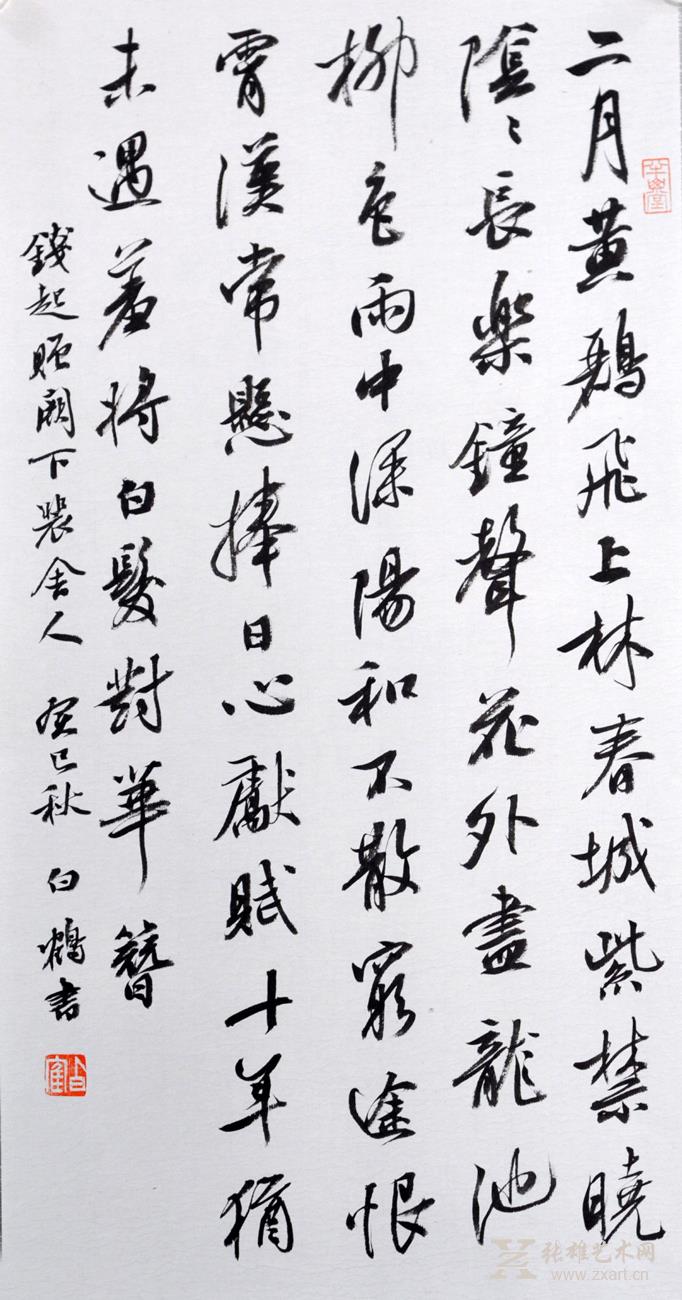 二月黄鸝飛上林春城紫禁曉
陰〻長樂鐘聲花外盡龍池
柳色雨中深陽和不散窮途恨
霄漢常懸捧日心獻賦十年猶
未遇羞將白髮對華簪
錢起贈闕下裴舍人 癸巳秋 白鶴書
张雄艺术网
www.zxart.cn